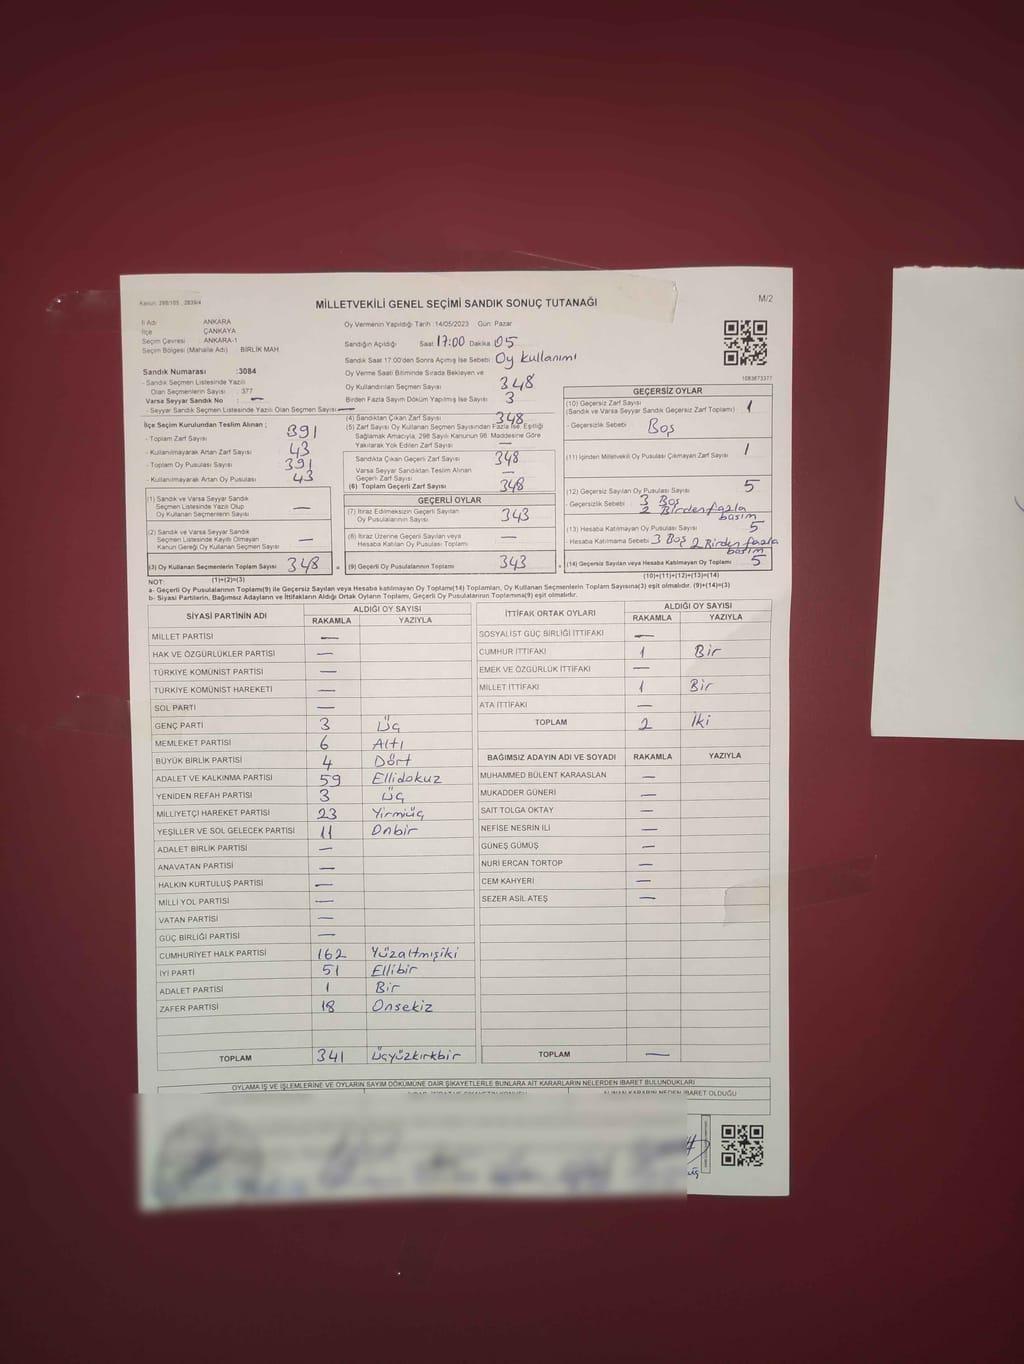 Kanun: 298/105 , 2839/4
MİLLETVEKİLİ GENEL SEÇİMİ SANDIK SONUÇ TUTANAĞI
M/2
İl Adı ANKARA
İlçe ÇANKAYA
Seçim Çevresi ANKARA-1
Seçim Bölgesi (Mahalle Adı) BİRLİK MAH.
Sandık Numarası :3084
- Sandık Seçmen Listesinde Yazılı
Olan Seçmenlerin Sayısı : 377
Varsa Seyyar Sandık No : —
- Seyyar Sandık Seçmen Listesinde Yazılı Olan Seçmen Sayısı: —
Oy Vermenin Yapıldığı Tarih :14/05/2023 Gün: Pazar
Sandığın Açıldığı Saat 17:00 Dakika 05
Sandık Saat 17:00'den Sonra Açılmış İse Sebebi Oy kullanımı
Oy Verme Saati Bitiminde Sırada Bekleyen ve
Oy Kullandırılan Seçmen Sayısı 348
Birden Fazla Sayım Döküm Yapılmış İse Sayısı 3
1083673377
İlçe Seçim Kurulundan Teslim Alınan ;
- Toplam Zarf Sayısı 391
- Kullanılmayarak Artan Zarf Sayısı 43
- Toplam Oy Pusulası Sayısı 391
- Kullanılmayarak Artan Oy Pusulası 43
(1) Sandık ve Varsa Seyyar Sandık
Seçmen Listesinde Yazılı Olup
Oy Kullanan Seçmenlerin Sayısı —
(2) Sandık ve Varsa Seyyar Sandık
Seçmen Listesinde Kayıtlı Olmayan
Kanun Gereği Oy Kullanan Seçmen Sayısı —
(3) Oy Kullanan Seçmenlerin Toplam Sayısı 348 =
(4) Sandıktan Çıkan Zarf Sayısı 348
(5) Zarf Sayısı Oy Kullanan Seçmen Sayısından Fazla İse, Eşitliği
Sağlamak Amacıyla, 298 Sayılı Kanunun 98. Maddesine Göre
Yakılarak Yok Edilen Zarf Sayısı —
Sandıkta Çıkan Geçerli Zarf Sayısı 348
Varsa Seyyar Sandıktan Teslim Alınan
Geçerli Zarf Sayısı —
(6) Toplam Geçerli Zarf Sayısı 348
GEÇERLİ OYLAR
(7) İtiraz Edilmeksizin Geçerli Sayılan
Oy Pusulalarının Sayısı 343
(8) İtiraz Üzerine Geçerli Sayılan veya
Hesaba Katılan Oy Pusulası Toplamı —
(9) Geçerli Oy Pusulalarının Toplamı 343 +
GEÇERSİZ OYLAR
(10) Geçersiz Zarf Sayısı
(Sandık ve Varsa Seyyar Sandık Geçersiz Zarf Toplamı) 1
- Geçersizlik Sebebi Boş
(11) İçinden Milletvekili Oy Pusulası Çıkmayan Zarf Sayısı 1
(12) Geçersiz Sayılan Oy Pusulası Sayısı 5
- Geçersizlik Sebebi 3 Boş
2 Birden fazla
basım
(13) Hesaba Katılmayan Oy Pusulası Sayısı 5
- Hesaba Katılmama Sebebi 3 Boş 2 Birden fazla
basım
(14) Geçersiz Sayılan veya Hesaba Katılmayan Oy Toplamı 5
NOT: (1)+(2)=(3)
(10)+(11)+(12)+(13)=(14)
a- Geçerli Oy Pusulalarının Toplamı(9) ile Geçersiz Sayılan veya Hesaba katılmayan Oy Toplamı(14) Toplamları, Oy Kullanan Seçmenlerin Toplam Sayısına(3) eşit olmalıdır. (9)+(14)=(3)
b- Siyasi Partilerin, Bağımsız Adayların ve İttifakların Aldığı Ortak Oyların Toplamı, Geçerli Oy Pusulalarının Toplamına(9) eşit olmalıdır.
SİYASİ PARTİNİN ADI
ALDIĞI OY SAYISI
RAKAMLA YAZIYLA
MİLLET PARTİSİ —
HAK VE ÖZGÜRLÜKLER PARTİSİ —
TÜRKİYE KOMÜNİST PARTİSİ —
TÜRKİYE KOMÜNİST HAREKETİ —
SOL PARTİ —
GENÇ PARTİ 3 Üç
MEMLEKET PARTİSİ 6 Altı
BÜYÜK BİRLİK PARTİSİ 4 Dört
ADALET VE KALKINMA PARTİSİ 59 Ellidokuz
YENİDEN REFAH PARTİSİ 3 Üç
MİLLİYETÇİ HAREKET PARTİSİ 23 Yirmiüç
YEŞİLLER VE SOL GELECEK PARTİSİ 11 Onbir
ADALET BİRLİK PARTİSİ —
ANAVATAN PARTİSİ —
HALKIN KURTULUŞ PARTİSİ —
MİLLİ YOL PARTİSİ —
VATAN PARTİSİ —
GÜÇ BİRLİĞİ PARTİSİ —
CUMHURİYET HALK PARTİSİ 162 Yüzaltmışiki
İYİ PARTİ 51 Ellibir
ADALET PARTİSİ 1 Bir
ZAFER PARTİSİ 18 Onsekiz
TOPLAM 341 Üçyüzkırkbir
İTTİFAK ORTAK OYLARI
ALDIĞI OY SAYISI
RAKAMLA YAZIYLA
SOSYALİST GÜÇ BİRLİĞİ İTTİFAKI —
CUMHUR İTTİFAKI 1 Bir
EMEK VE ÖZGÜRLÜK İTTİFAKI —
MİLLET İTTİFAKI 1 Bir
ATA İTTİFAKI —
TOPLAM 2 İki
BAĞIMSIZ ADAYIN ADI VE SOYADI RAKAMLA YAZIYLA
MUHAMMED BÜLENT KARAASLAN —
MUKADDER GÜNERİ —
SAİT TOLGA OKTAY —
NEFİSE NESRİN İLİ —
GÜNEŞ GÜMÜŞ —
NURİ ERCAN TORTOP —
CEM KAHYERİ —
SEZER ASİL ATEŞ —
TOPLAM —
OYLAMA İŞ VE İŞLEMLERİNE VE OYLARIN SAYIM DÖKÜMÜNE DAİR ŞİKAYETLERLE BUNLARA AİT KARARLARIN NELERDEN İBARET BULUNDUKLARI
ALINAN KARARIN NEDEN İBARET OLDUĞU